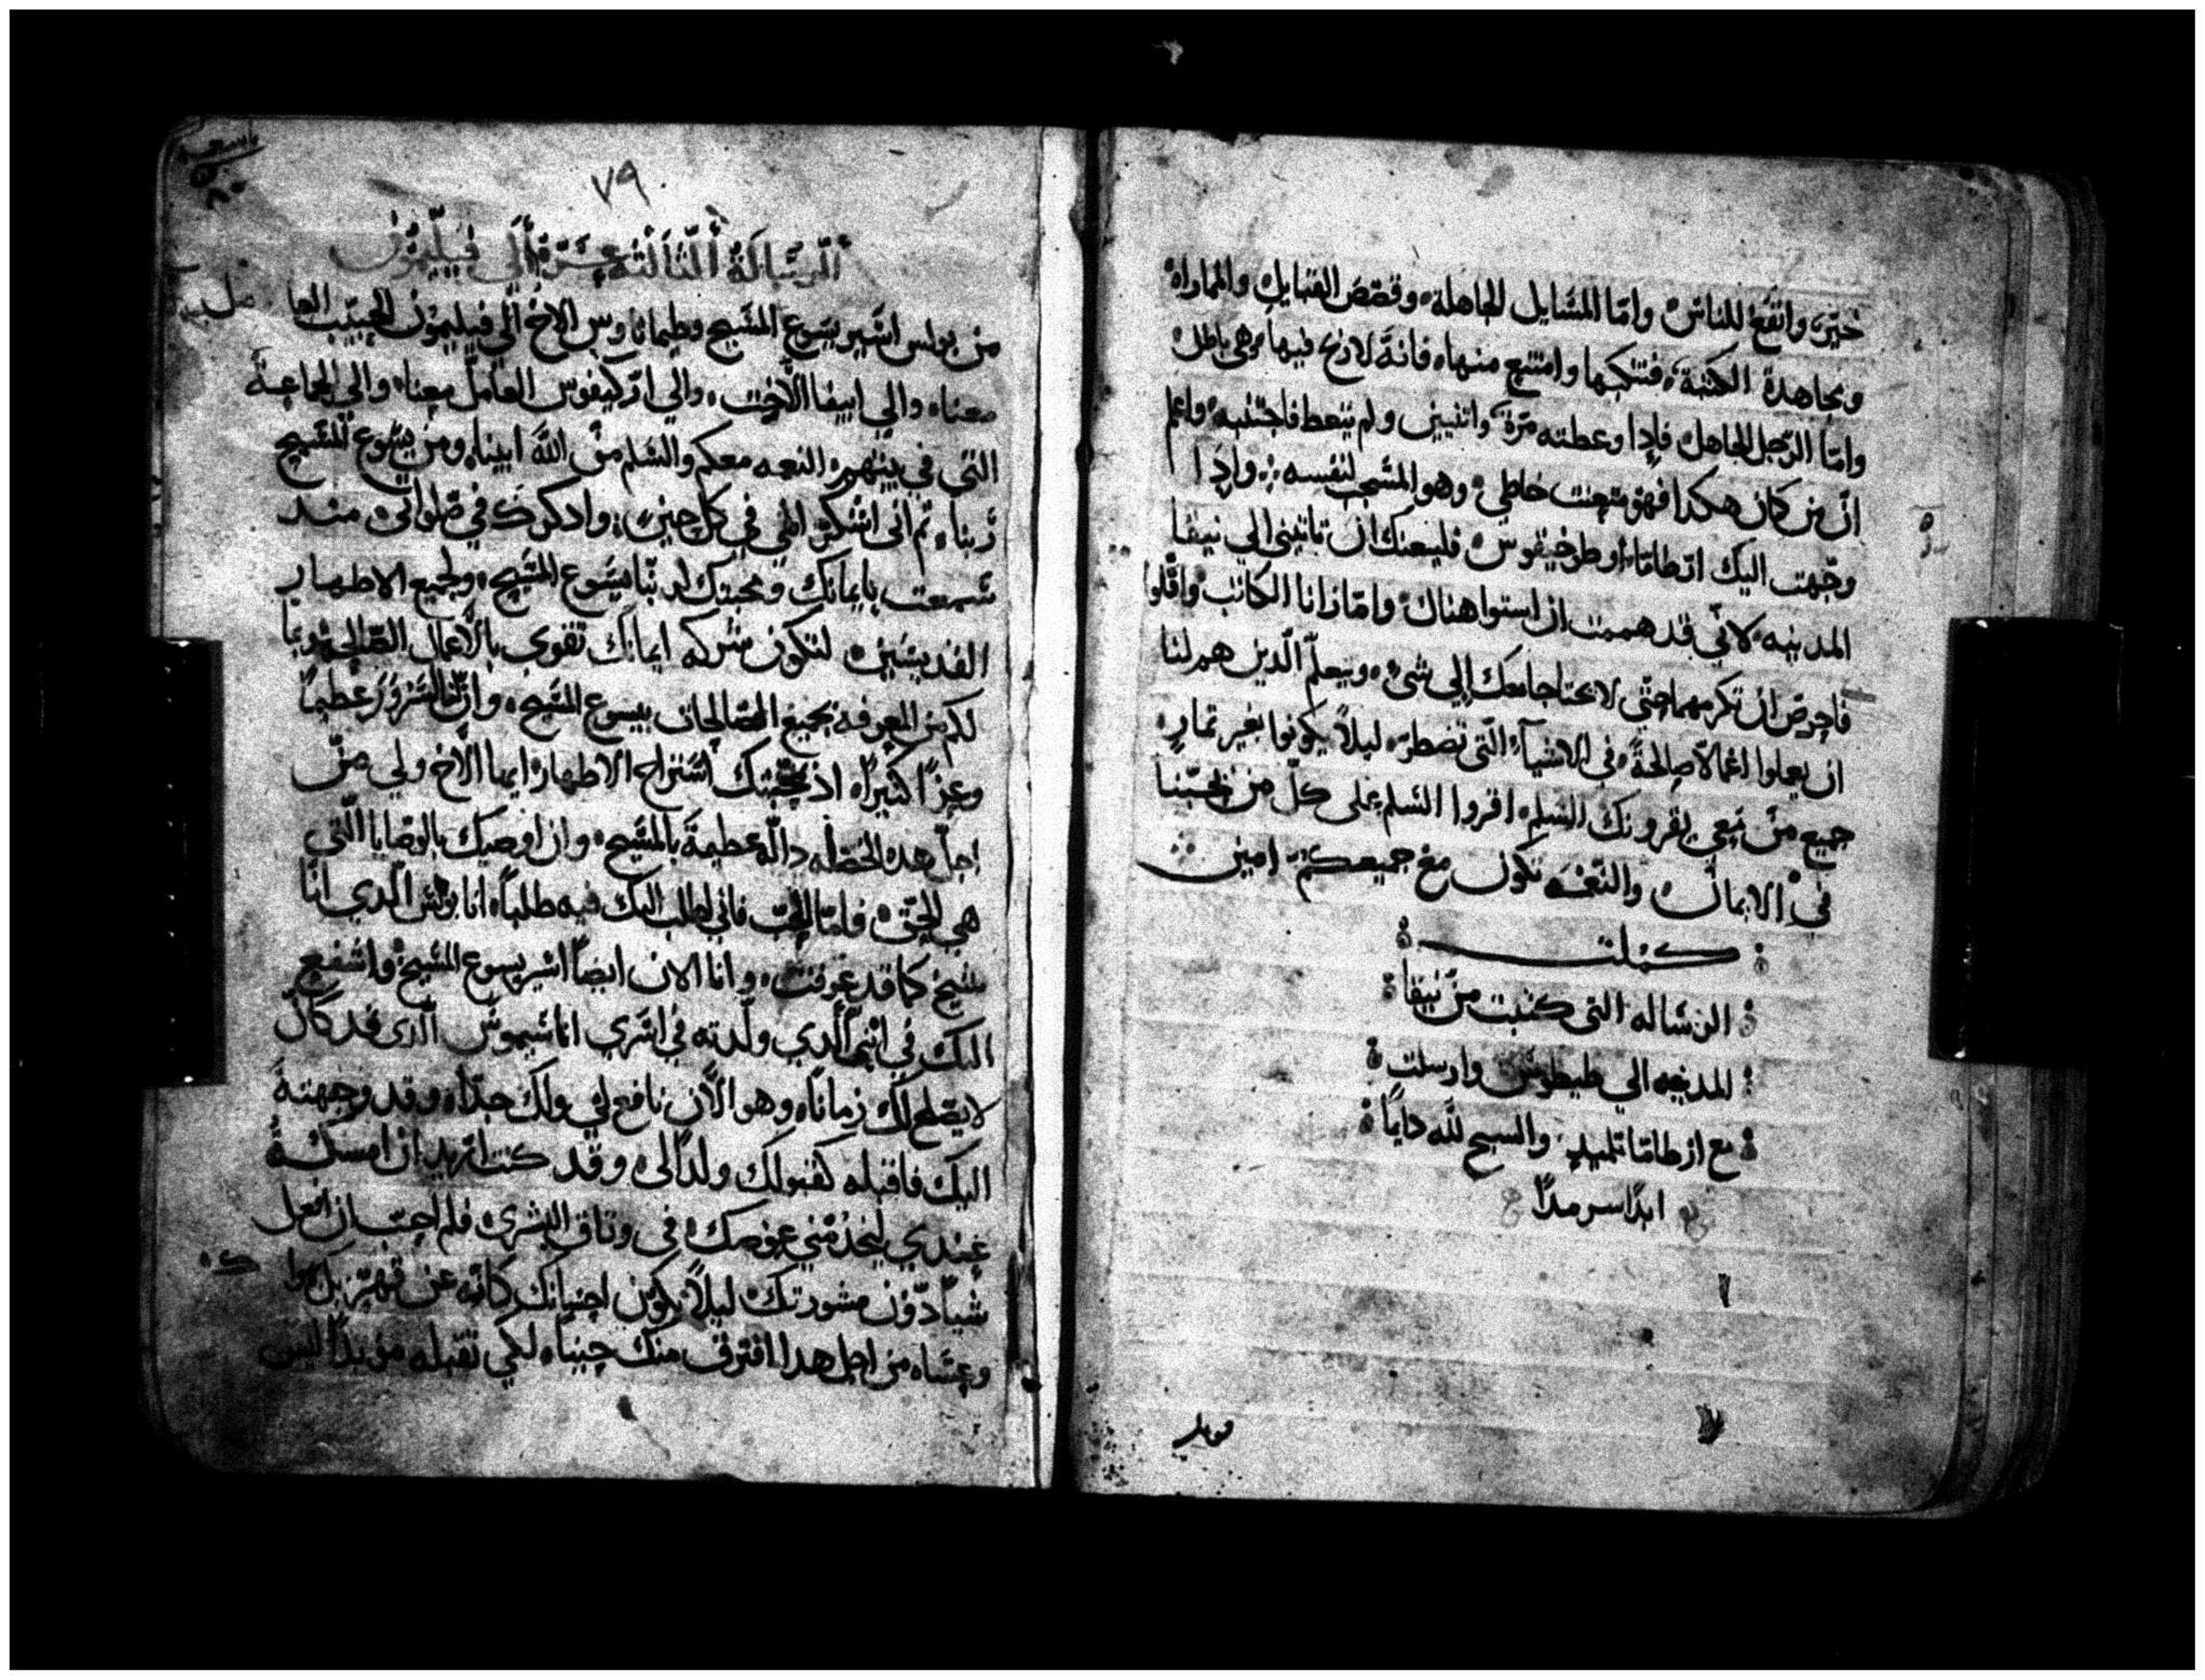 خير، وانفع للناس وامّا المسَايل الجاهلة، وقصَص القبايل والمماراه
ومجاهدة الكتبة، فتنكبها وامتنع منها، فانه لا ربح فيها وهى باطل
وامّا الرّجل الجاهل فإدا وعطته مرّة واثنيين ولم يتعط فاجتنبه واعلم
انّ من كان هكدا فهو متعنت خاطي، وهو المشجب لنفسه ⁘ وادَا
وجّهت اليك ارطاماس او طوخيقوس فليعنك ان تاتينى الى نيقفا
المدينه، لانّي قد هممت ان استوا هناك وامّا زانا الكاتب وافّلوا
فاحرص ان تكرمهما حتّي لا يحتاجا معك إلي شيء، ويتعلّم الّدين هم لنا
ان يعملوا اعمالاً صالحةً، في الاشيآ، الّتي تضطرّ، ليلاً يكونوا بغير تمار
جميع منَ معي يقرونك السّلم، اقروا السّلم على كلّ من يحَبّنا
في الايمان، والنّعمَه تكون مع جميعكم امين
كملت
الرسَاله التى كتبت من نيقفا
المدينه الي طيطوس وارسلت
مع ارطاما تلميده والسبح للّه دايمًا
ابدًا سرمدًا
من بولس
٧٩
الرّسَالَةُ الثَّالثه عِشَرة إلَى فيليمُون
من بولس اسَير يسَوع المسَيح وطيماتاوس الاخ الي فيليمون الحَبيب العا مل
معنا، والي ابفيا الاخت، والي ارّكيفوس العامل معنا، والي الجماعة
التي في بيتهم، النعمه معكم والسَلم من اللّه ابينا، ومن يسَوع المسَيح
رَبنا، تم انى اشكر الهي في كل حين، وادكرك في صَلواتى، منـد
سَمعت بايمانك ومحبتك لربّنا يسَوع المسَيح، ولجميع الاطهار
القديسَين، لتكون شركه ايمانك تقوى بالاعمال الصَالحه وبما
لكم من المعرفه بجميع الصَالحات بيسوع المسَيح، وانّ لنا لسَرورَ عَطيمًا
وعزًا كثيرًا، اذ بمحبّتك اسَتراح الاطهار، ايها الاخ ولي من
اجل هده الخصَله دالّة عطيمة بالمسَيح، وان اوصيك بالوصَايا الّتي
هي للحَق، فامّا الحب فاني اطلب اليك فيه طلبًا، انا بولسَ الّدي انا
شيخ كما قد عرفت، وانا الان ايضًا اسَير يسوع المسَيح، واشفع
اليك في ابني الّدي ولّدته في اسَري اناسَيموسَ الّدى قد كان
لا يصَلح لك زمانًا، وهو الآن نافع لي ولك جدًّا، وقد وجهته
اليك فاقبله كقبولك ولدًا لى، وقد كنت اريد ان امسكه
عندي ليخدمني عوضك، في وتاق البشرى، فلم احبّ ان افعل
شياً دوّن مشورتك، ليلاً يكون احسَانك كانّه عن قهر بل هوا ك
وعسَاه من اجل هدا افترق منك حينًا، لكي تقبله مؤبدًا ليس